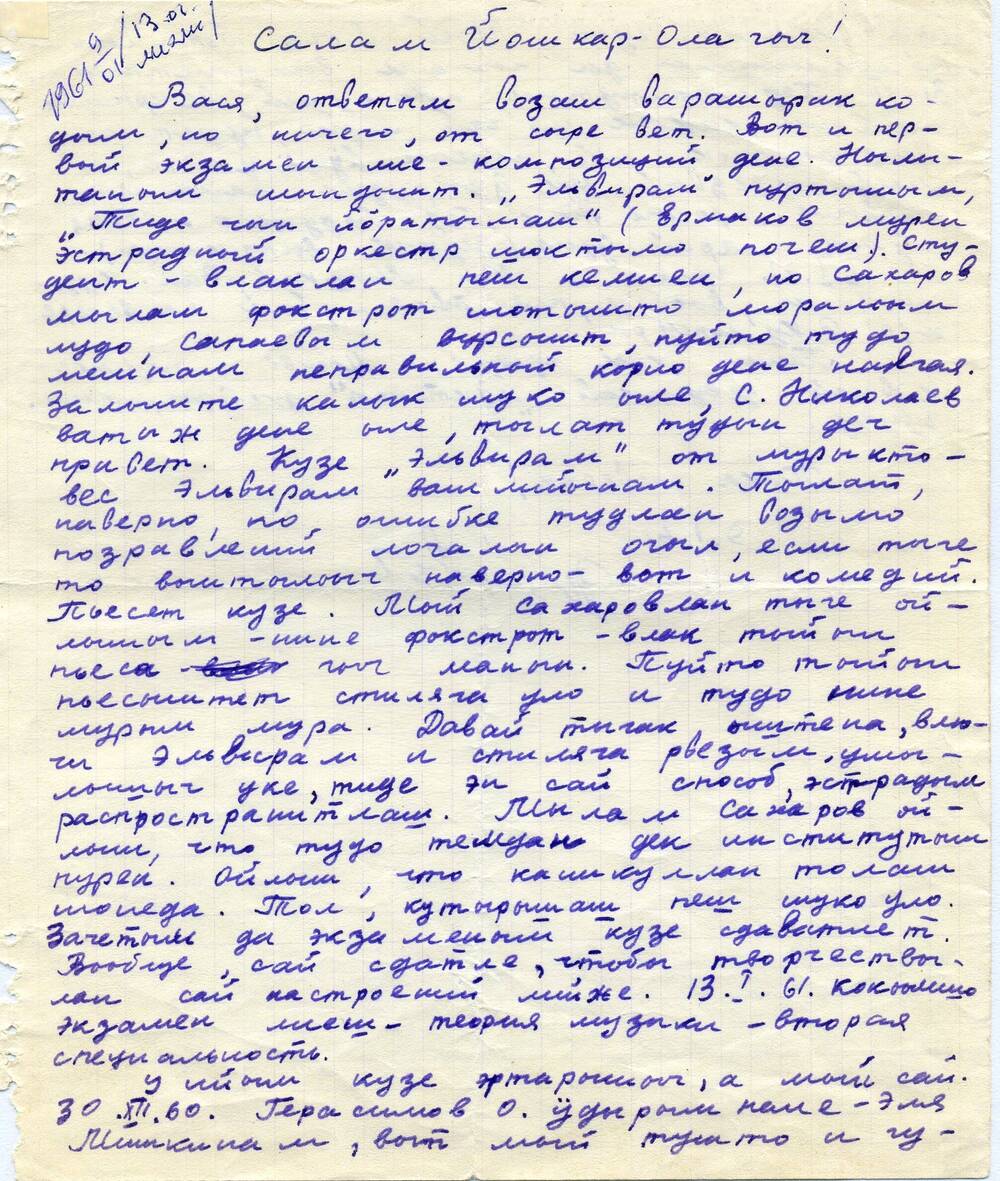 1961 9/01 /13 01. миэии/
Салам Йошкар-Ола гыч!
Вася, ответым возаш варашырак ко-
дым, но ничего, от сыре вет. Вот и пер-
вый экзамен лие - композиций дене. Ныли-
таным шындышт. „Эльвирам" пуртышым,
„Тиде чын йӧратымаш" (Ермаков мурен
эстрадный оркестр шоктымо почеш). Сту-
дент-влаклан пеш келшен, но Сахаров
мылам фокстрот шотышто моральым
лудо, Сапаевым вурсышт, пуйто тудо
мемнам неправильный корно дене наҥгая.
Залыште калык шуко ыле, С. Николаев
ватыж дене ыле, тылат тудын деч
привет. Кузе „Эльвирам" от муры кто-
вес Эльвирам ваш лийынам. Тылат,
наверно, по ошибке тудлан возымо
поздравлений логалын огыл, если тыге
то воштылыч наверно - вот и комедий.
Пьесет кузе. Мый Сахаровлан тыге ой-
лышым - нине фокстрот-влак тыйын
пьеса гыч манын. Пуйто тыйын
пьесыштет стиляга уло и тудо нине
мурым мура. Давай тыгак ыштена, вклю-
чи Эльвирам и стиляга рвезым, ушы-
лыныч уке, тиде эн сай способ, эстрадым
распространитлаш. Мылам Сахаров ой-
лыш, что тудо тендан дек институтыш
пурен. Ойлыш, что каникуллан толаш
шонеда. Тол, кутырышаш пеш шуко уло.
Зачетым да экзаменым кузе сдаватлет.
Вообще, сай сдатле, чтобы творчествы-
лан сай настроений лийже. 13.I.61. кокымшо
экзамен лиеш - теория музыки - вторая
специальность.
У ийым кузе эртарышыч, а мый сай.
30.XII.60. Герасимов О. ӱдырым нале - Эля
Мишкинам, вот мый тушто и гу-